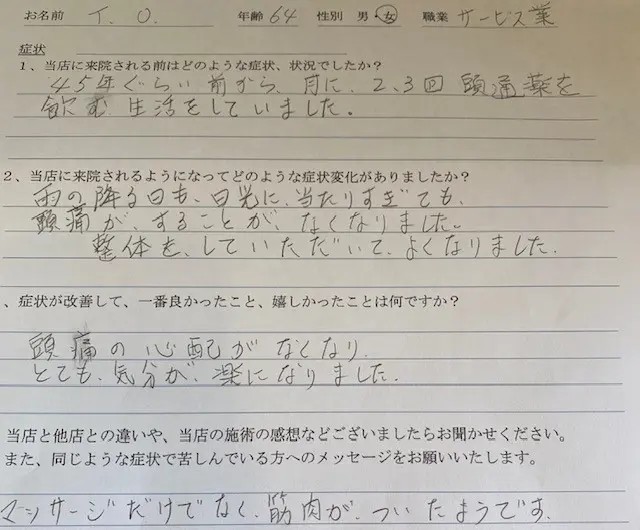 お名前 T. O. 年齢 64 性別 男・女 職業 サービス業
症状
1、当店に来院される前はどのような症状、状況でしたか？
45年ぐらい前から、月に、2、3回頭痛薬を
飲む生活をしていました。
2、当店に来院されるようになってどのような症状変化がありましたか？
雨の降る日も、日光に、当たりすぎても、
頭痛が、することが、なくなりました。
整体を、していただいて、よくなりました.
、症状が改善して、一番良かったこと、嬉しかったことは何ですか？
頭痛の心配がなくなり、
とても、気分が、楽になりました.
当店と他店との違いや、当店の施術の感想などございましたらお聞かせください。
また、同じような症状で苦しんでいる方へのメッセージをお願いいたします。
マッサージだけでなく、筋肉が、ついたようです.